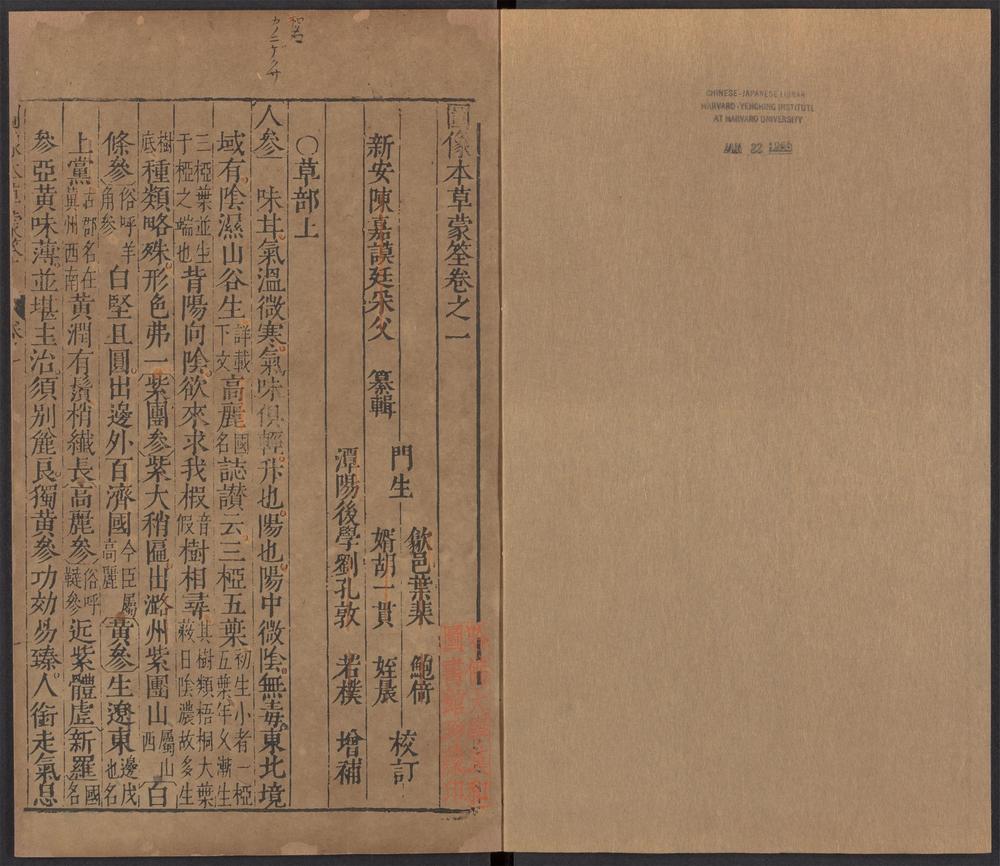 圖像本草蒙筌卷之一
新安陳嘉謨廷采父 纂輯
門生 歙邑葉棐 鮑倚 校訂
婿胡一貫 姪晨
潭陽後學劉孔敦 若樸 增補
〇草部上
人參 味甘氣溫微寒氣味俱輕升也陽也陽中微陰無毒東北境
域有陰濕山谷生詳載下文高麗國名誌讚云三椏五葉初生小者一椏五葉年久漸生
三椏葉並生于椏之端也背陽向陰欲來求我椵音假樹相尋其樹類梧桐大葉蔽日陰濃故多生
樹底種類略殊形色弗一紫團參紫大稍匾出潞州紫團山屬山西白
條參俗呼羊角參白堅且圓出邊外百濟國今臣屬高麗黃參生遼東邊戍名也
上黨古郡名在冀州西南黃潤有鬚梢纖長高麗參俗呼韃參近紫體虛新羅國名
參亞黃味薄並堪主治須別麄良獨黃參功効易臻人銜走氣息
CHINESE-JAPANESE LIBRARY
HARVARD-YENCHING INSTITUTE
AT HARVARD UNIVERSITY
JAN 22 1935